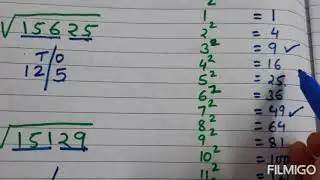 √15625
T O
12 5
√15129
1² = 1
2² = 4
3² = 9 ✓
4² = 16
5² = 25
6² = 36
7² = 49 ✓
8² = 64
9² = 81
10² =
11² =
FILMIGO